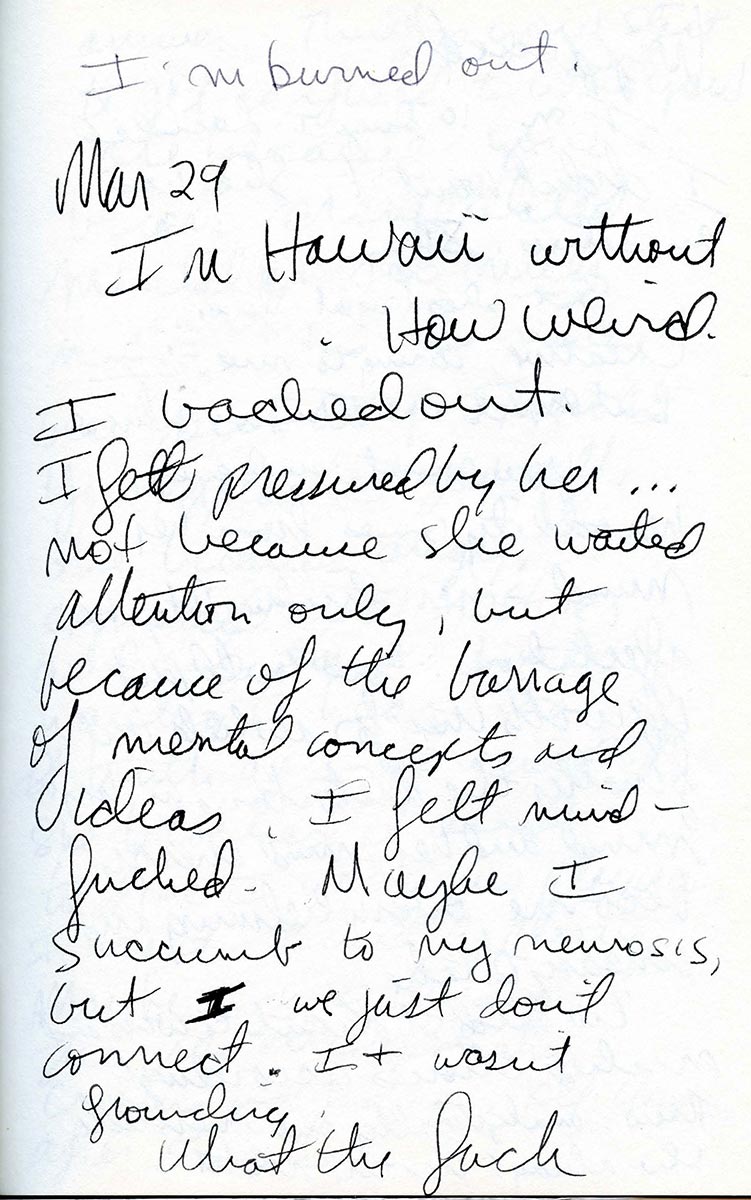 I'm burned out.
Mar 29
I'm Hawaii without
. How weird.
I backed out.
I felt pressured by her ...
not because she wanted
attention only, but
because of the barrage
of mental concepts and
ideas. I felt mind-
fucked. Maybe I
succumb to my neurosis,
but I we just don't
connect. It wasn't
grounding.
What the fuck